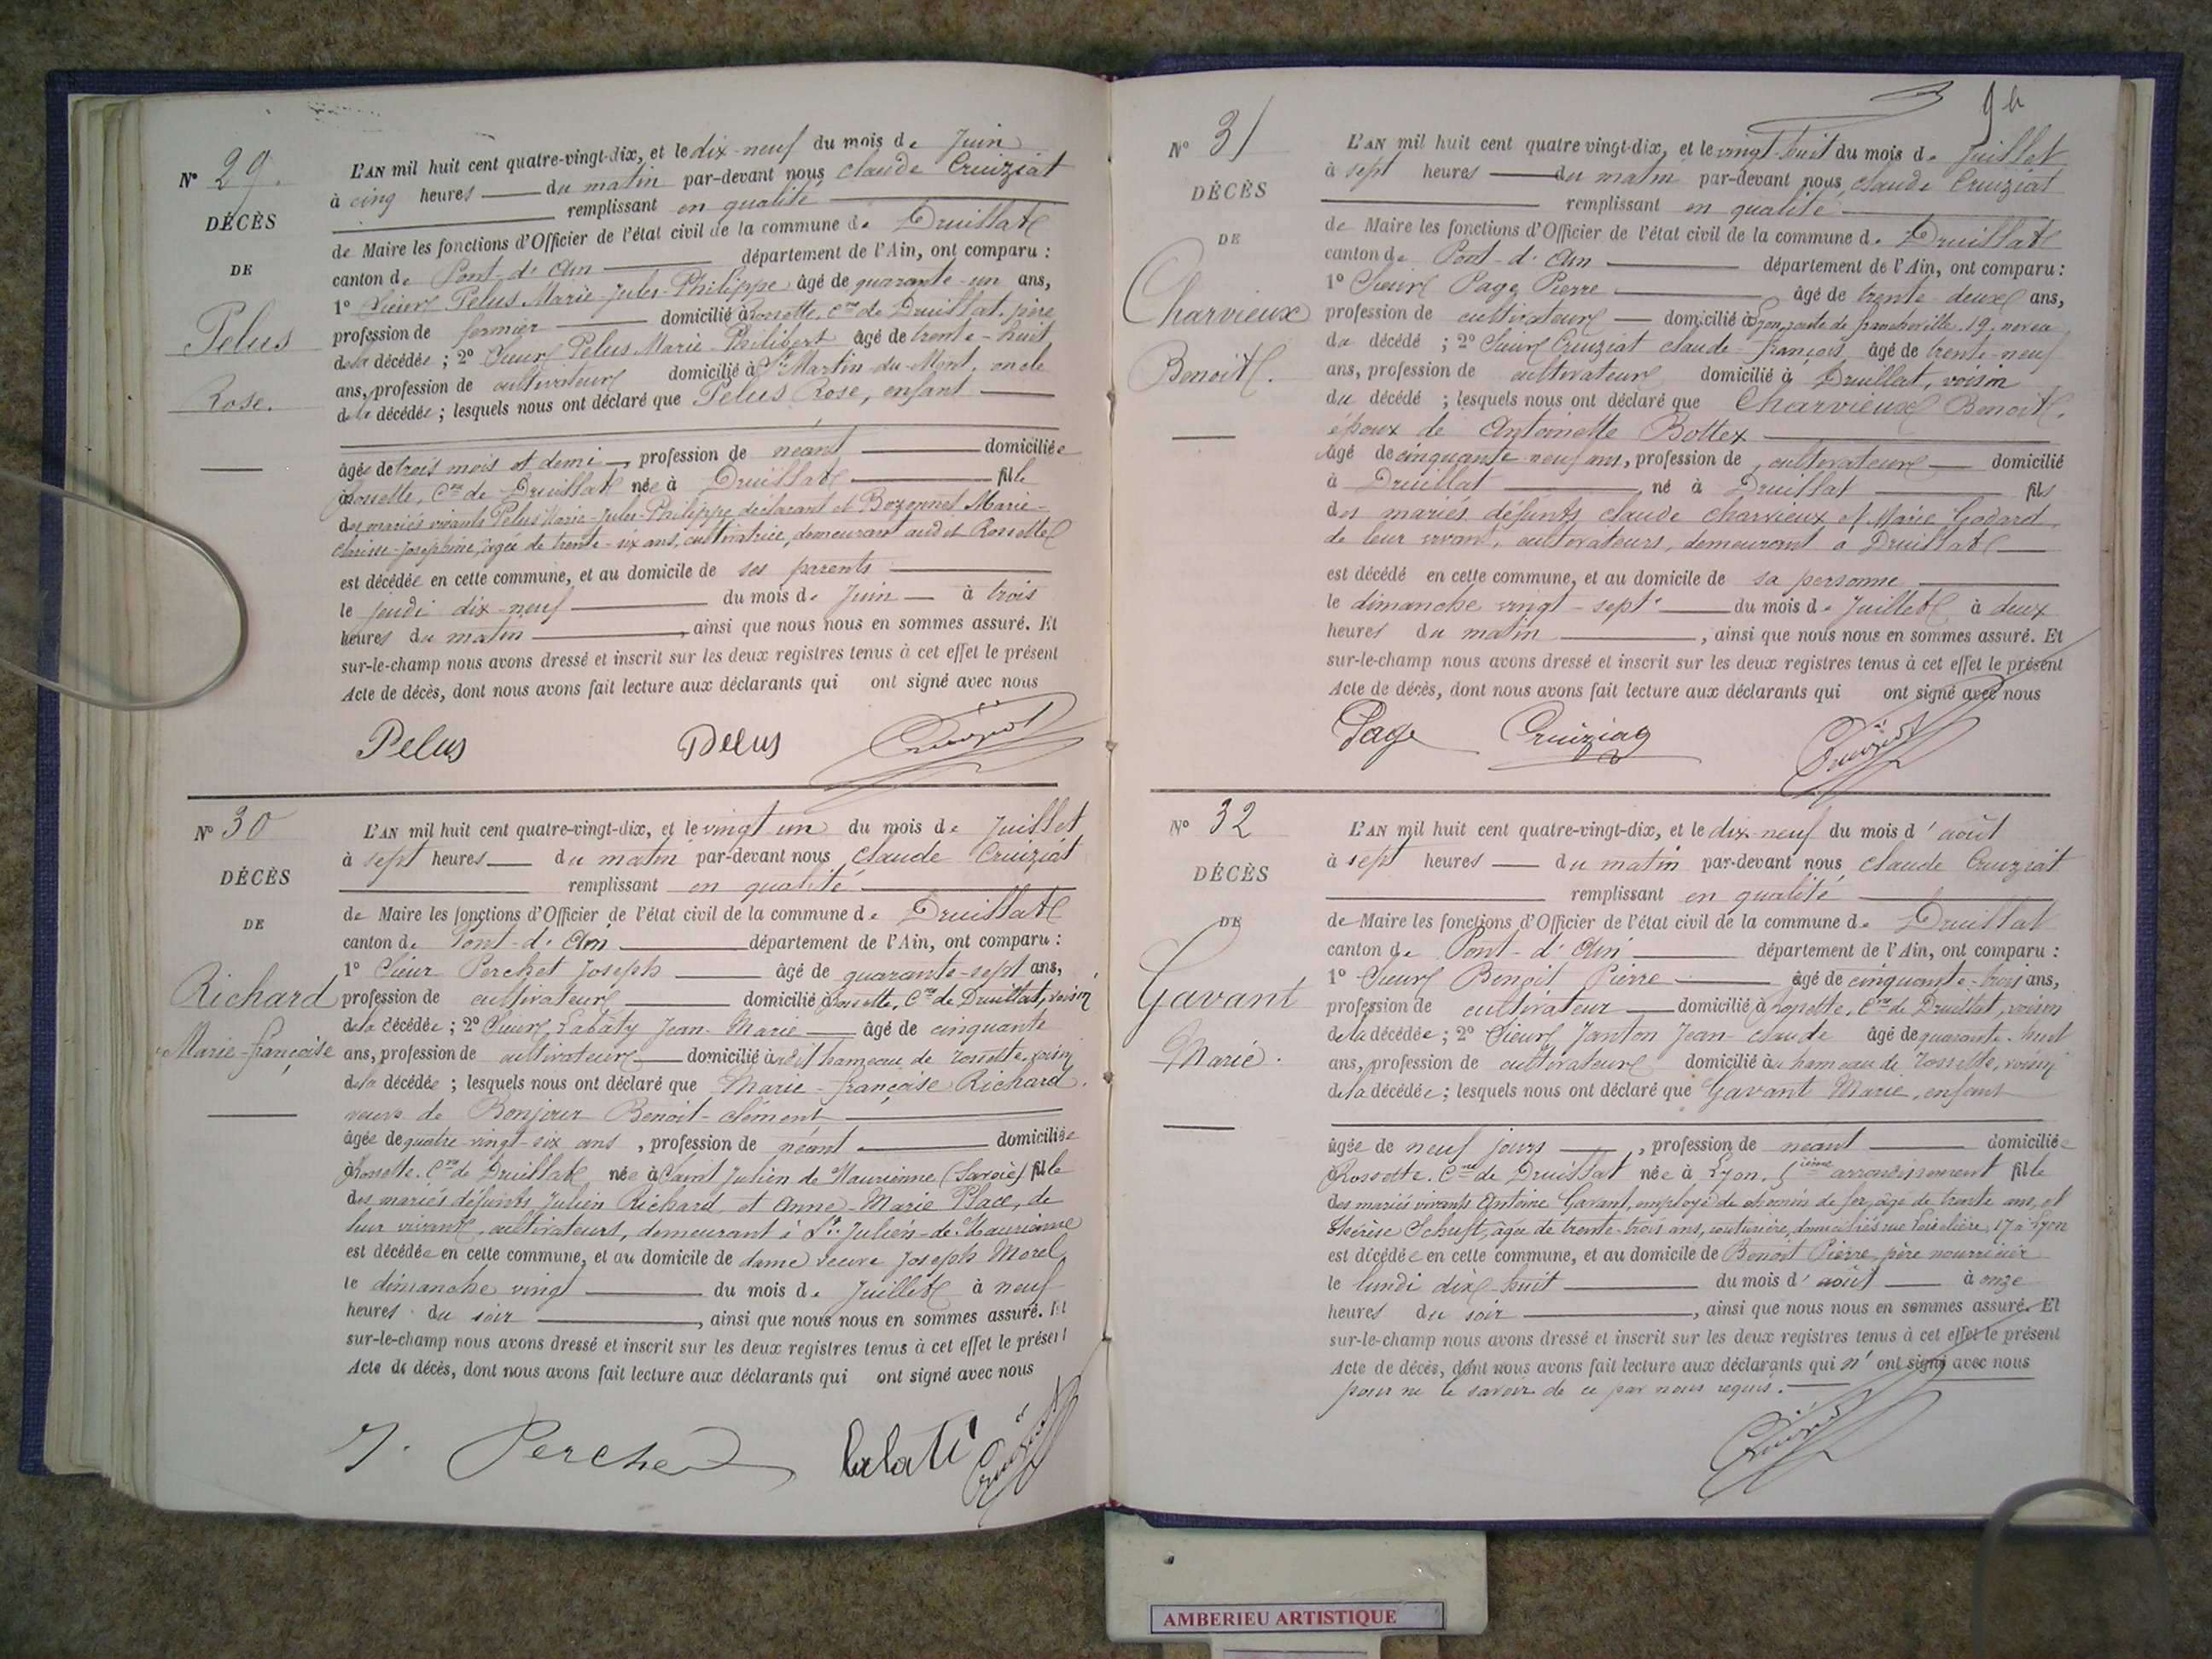 N° 29.
DÉCÈS
DE
Pelus
Rose.
L'AN mil huit cent quatre-vingt-dix, et le dix-neuf du mois de Juin
à cinq heures du matin par-devant nous Claude Cruiziat
remplissant en qualité
de Maire les fonctions d'Officier de l'état civil de la commune de Druillat
canton de Pont-d'Ain département de l'Ain, ont comparu :
1° Sieur Pelus Marie-Jules-Philippe âgé de quarante-un ans,
profession de fermier domicilié à Rossette, Cne de Druillat, père
de la décédée ; 2° Sieur Pelus Marie-Philibert âgé de trente-huit
ans, profession de cultivateur domicilié à St Martin-du-Mont, oncle
de la décédée ; lesquels nous ont déclaré que Pelus Rose, enfant
âgée de trois mois et demi, profession de néant domiciliée
à Rossette, Cne de Druillat née à Druillat fille
des mariés vivants Pelus Marie-Jules-Philippe, déclarant et Bozonnet Marie-
Clarisse-Joséphine, âgée de trente-six ans, cultivatrice, demeurant audit Rossette
est décédée en cette commune, et au domicile de ses parents
le jeudi dix-neuf du mois de Juin à trois
heures du matin, ainsi que nous nous en sommes assuré. Et
sur-le-champ nous avons dressé et inscrit sur les deux registres tenus à cet effet le présent
Acte de décès, dont nous avons fait lecture aux déclarants qui ont signé avec nous
Pelus Pelus Cruiziat
N° 30
DÉCÈS
DE
Richard
Marie-françoise
L'AN mil huit cent quatre-vingt-dix, et le vingt un du mois de Juillet
à sept heures du matin par-devant nous Claude Cruiziat
remplissant en qualité
de Maire les fonctions d'Officier de l'état civil de la commune de Druillat
canton de Pont-d'Ain département de l'Ain, ont comparu :
1° Sieur Perchet Joseph âgé de quarante-sept ans,
profession de cultivateur domicilié à Rossette, Cne de Druillat, voisin
de la décédée ; 2° Sieur Labaty Jean-Marie âgé de cinquante
ans, profession de cultivateur domicilié audit hameau de rossette, voisin
de la décédée ; lesquels nous ont déclaré que Marie-françoise Richard,
veuve de Bonjour Benoit-Clément
âgée de quatre-vingt-six ans, profession de néant domiciliée
à Rossette, Cne de Druillat née à Saint Julien de Maurienne (Savoie) fille
des mariés défunts Julien Richard et Anne-Marie Place, de
leur vivant, cultivateurs, demeurant à St Julien-de-Maurienne
est décédée en cette commune, et au domicile de dame veuve Joseph Morel
le dimanche vingt du mois de Juillet à neuf
heures du soir, ainsi que nous nous en sommes assuré. Et
sur-le-champ nous avons dressé et inscrit sur les deux registres tenus à cet effet le présent
Acte de décès, dont nous avons fait lecture aux déclarants qui ont signé avec nous
J. Perchet Labati Cruiziat
N° 31
DÉCÈS
DE
Charvieux
Benoit.
L'AN mil huit cent quatre vingt-dix, et le vingt-huit du mois de Juillet
à sept heures du matin par-devant nous Claude Cruiziat
remplissant en qualité
de Maire les fonctions d'Officier de l'état civil de la commune de Druillat
canton de Pont-d'Ain département de l'Ain, ont comparu :
1° Sieur Page Pierre âgé de trente-deux ans,
profession de cultivateur domicilié à Lyon, route de francheville, 19, neveu
du décédé ; 2° Sieur Cruiziat Claude-françois âgé de trente-neuf
ans, profession de cultivateur domicilié à Druillat, voisin
du décédé ; lesquels nous ont déclaré que Charvieux Benoit,
époux de Antoinette Bottex
âgé de cinquante-neuf ans, profession de cultivateur domicilié
à Druillat né à Druillat fils
des mariés défunts Claude Charvieux et Marie Godard,
de leur vivant, cultivateurs, demeurant à Druillat
est décédé en cette commune, et au domicile de sa personne
le dimanche vingt-sept du mois de Juillet à deux
heures du matin, ainsi que nous nous en sommes assuré. Et
sur-le-champ nous avons dressé et inscrit sur les deux registres tenus à cet effet le présent
Acte de décès, dont nous avons fait lecture aux déclarants qui ont signé avec nous
Page Cruiziat Cruiziat
N° 32
DÉCÈS
DE
Gavant
Marie.
L'AN mil huit cent quatre-vingt-dix, et le dix-neuf du mois d'août
à sept heures du matin par-devant nous Claude Cruiziat
remplissant en qualité
de Maire les fonctions d'Officier de l'état civil de la commune de Druillat
canton de Pont-d'Ain département de l'Ain, ont comparu :
1° Sieur Benoit Pierre âgé de cinquante-trois ans,
profession de cultivateur domicilié à rossette, Cne de Druillat, voisin
de la décédée ; 2° Sieur Janton Jean-Claude âgé de quarante-huit
ans, profession de cultivateur domicilié au hameau de rossette, voisin
de la décédée ; lesquels nous ont déclaré que Gavant Marie, enfant
âgée de neuf jours, profession de néant domiciliée
à Rossette, Cne de Druillat née à Lyon, 5ième arrondissement fille
des mariés vivants Antoine Gavant, employé de chemins de fer, âgé de trente ans, et
Thérèse Schuft, âgée de trente-trois ans, couturière, domiciliés rue 17 à Lyon
est décédée en cette commune, et au domicile de Benoit Pierre, père nourricier
le lundi dix huit du mois d'août à onze
heures du soir, ainsi que nous nous en sommes assuré. Et
sur-le-champ nous avons dressé et inscrit sur les deux registres tenus à cet effet le présent
Acte de décès, dont nous avons fait lecture aux déclarants qui n'ont signé avec nous
pour ne le savoir de ce par nous requis.
Cruiziat
AMBERIEU ARTISTIQUE